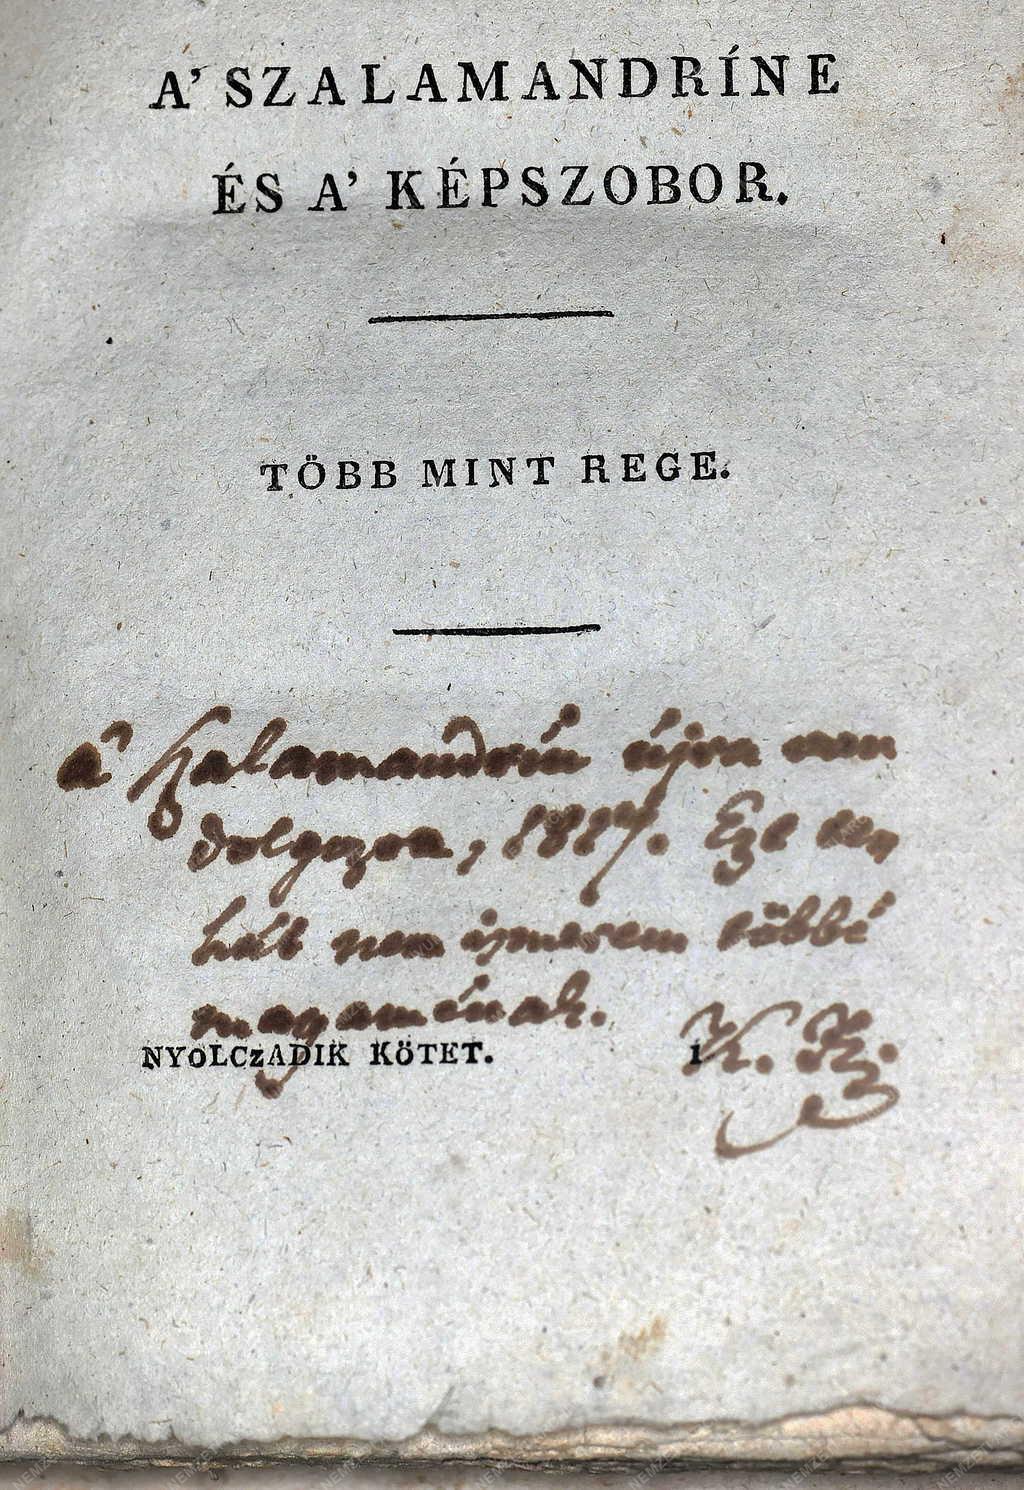 A’ SZALAMANDRÍNE
ÉS A’ KÉPSZOBOR.
TÖBB MINT REGE.
A’ Szalamandrín újra van
dolgozva, 1817. Ezt
hát nem ismerem többé
magaménak.
NYOLCZADIK KÖTET. 1
K. F.